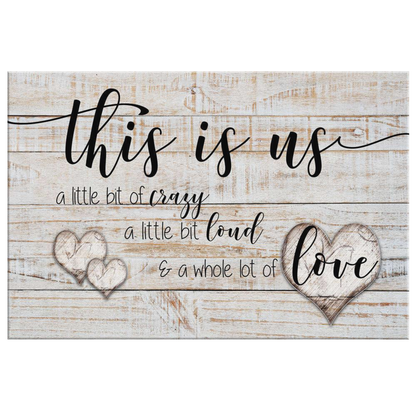 this is us
a little bit of crazy
a little bit loud
& a whole lot of love